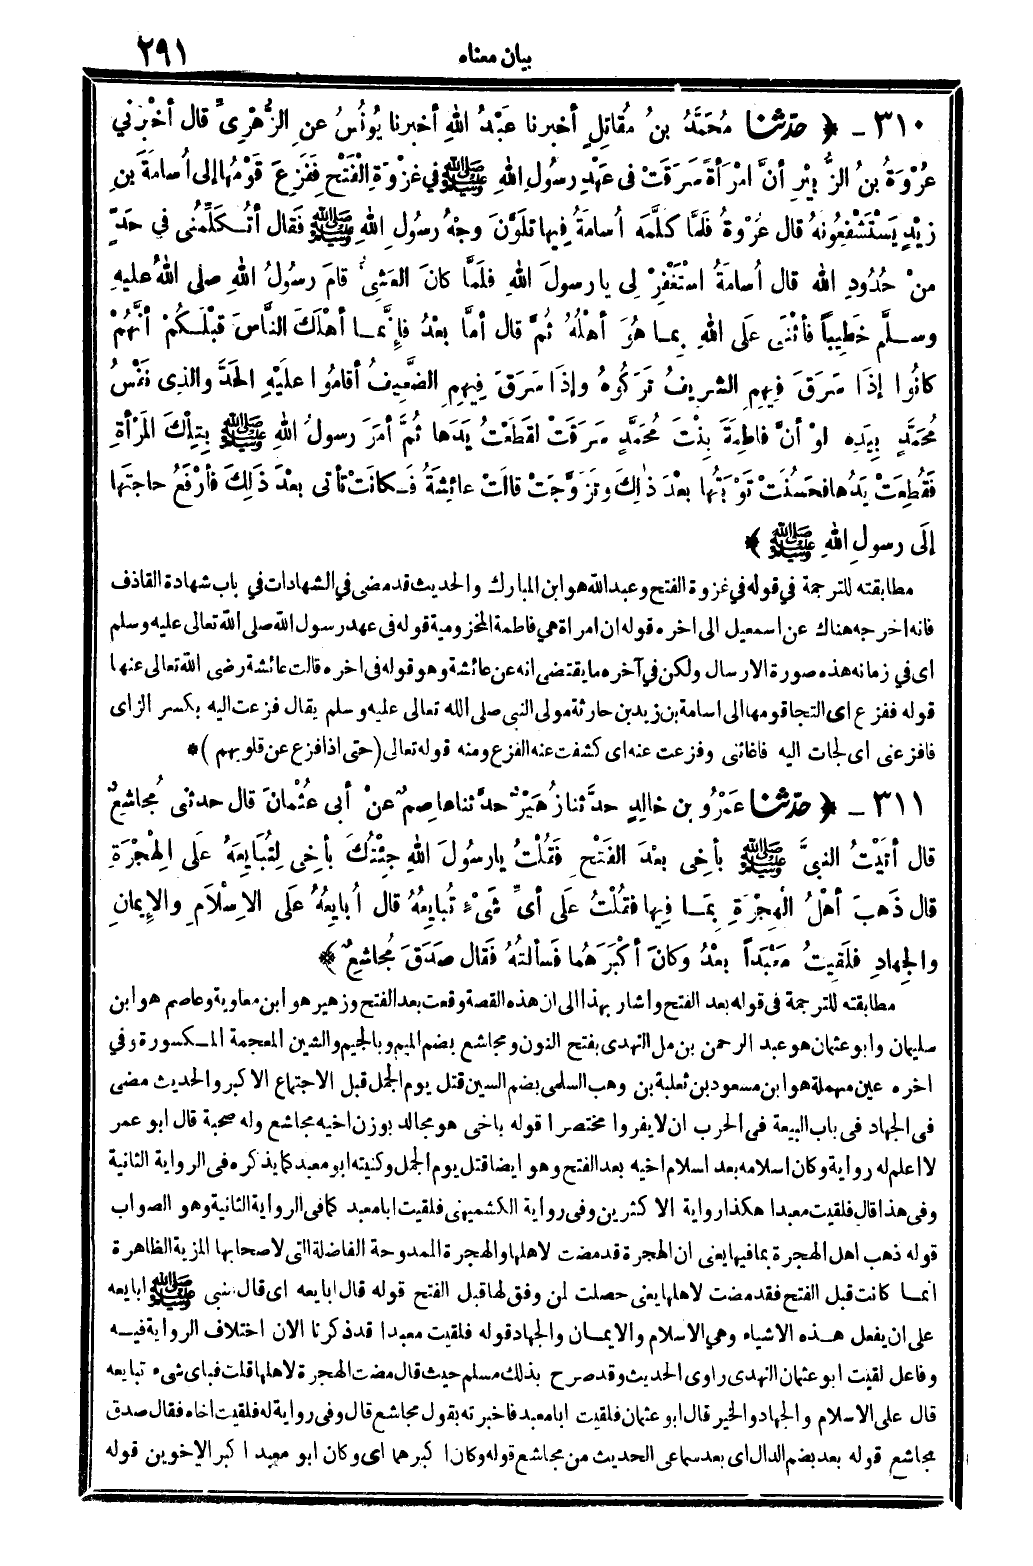 بيان معناه
٢٩١
٣١٠ ـ ﴿ حدثنا مُحَمَّدُ بنُ مُقَاتِلٍ أخبرنا عَبْدُ اللهِ أخبرنا يُونُسُ عنِ الزُّهْرِىِّ قال أخْبَرَنِي
عُرْوَةُ بنُ الزُّبَيْرِ أنَّ امْرَأةً سَرَقَتْ فى عَهْدِ رسولِ اللهِ ﷺ في غزْوَةِ الْفَتْحِ فَفَزِعَ قَوْمُها إلى أُسامَةَ بنِ
زيْدٍ يَسْتَشْفِعُونهُ قال عُرْوةُ فلَمَّا كلَّمَه أُسامَةُ فِيها تلَوَّنَ وجْهُ رسولِ اللهِ ﷺ فَقال أتُكَلِّمُنى في حَدٍّ
منْ حُدُودِ الله قال أُسامَةُ اسْتَغْفِرْ لِى يا رسولَ اللهِ فلَمَّا كانَ العَشِىُّ قامَ رسولُ اللهِ صلى اللهُ عليهِ
وسلَّم خَطِيباً فأثْنَى علَى اللهِ بِما هُوَ أهْلُهُ ثُمَّ قال أمَّا بعْدُ فإنَّما أهْلَكَ النَّاسَ قبْلَكُمْ أنَّهُمْ
كانُوا إذَا سَرَقَ فِيهِمِ الشريفُ تَرَكُوهُ وإذَا سَرَقَ فِيهِمِ الضَّعِيفُ أقامُوا علَيْهِ الحَدَّ والذِى نفْسُ
مُحَمَّدٍ بِيَدِهِ لوْ أنَّ فاطِمَةَ بِنْتَ مُحَمَّدٍ سَرقَتْ لقَطَعْتُ يدَها ثُمَّ أمَرَ رسولُ اللهِ ﷺ بِتِلْكَ المَرْأةِ
فَقُطِعَتْ يَدُها فحَسُنَتْ تَوْبَتُها بعْدَ ذٰلِكَ وتَزَوَّجَتْ قالَتْ عائِشَةُ فَكانَتْ تأتى بعْدَ ذَلِكَ فأرْفَعُ حاجتَها
إلَى رسولِ اللهِ ﷺ ﴾
مطابقته للترجمة في قوله في غزوة الفتح وعبد الله هو ابن المبارك والحديث قد مضى في الشهادات في باب شهادة القاذف
فانه اخرجه هناك عن اسمعيل الى اخره قوله ان امراة هي فاطمة المخزومية قوله فى عهد رسول الله صلى الله تعالى عليه وسلم
اى في زمانه هذه صورة الارسال ولكن في آخره ما يقتضى انه عن عائشة وهو قوله فى اخره قالت عائشة رضى الله تعالى عنها
قوله ففزع اى التجا قومها الى اسامة بن زيد بن حارثة مولى النبى صلى الله تعالى عليه وسلم يقال فزعت اليه بكسر الزاى
فافزعنى اى لجات اليه فاغاثنى وفزعت عنه اى كشفت عنه الفزع ومنه قوله تعالى (حتى اذا فزع عن قلوبهم) *
٣١١ ـ ﴿ حدثنا عَمْرُو بن خالِدٍ حدَّثنا زُهَيْرٌ حدَّثنا عاصِمٌ عنْ أبى عُثْمانَ قال حدثنى مُجاشِعٌ
قال أتَيْتُ النبىَّ ﷺ بأخِى بعْدَ الفَتْحِ فَقُلْتُ يا رسولَ اللهِ جِئْتُكَ بأخِى لِتُبَايِعَهُ علَى الهِجْرَةِ
قال ذَهَبَ أهْلُ الهِجْرَةِ بِمَا فِيها فقُلْتُ علَى أىِّ شَىْءٍ تُبايِعُهُ قال أُبايِعُهُ علَى الاسْلاَمِ والإِيمانِ
والجِهادِ فلَقِيتُ مَعْبَداً بعْدُ وكانَ أكْبَرَهُما فَسألتُهُ فَقال صَدَقَ مُجاشِعٌ ﴾
مطابقته للترجمة فى قوله بعد الفتح واشار بهذا الى ان هذه القصة وقعت بعد الفتح وزهير هو ابن معاوية وعاصم هو ابن
سليمان وابو عثمان هو عبد الرحمن بن مل النهدى بفتح النون ومجاشع بضم الميم وبالجيم والشين المعجمة المكسورة وفي
اخره عين مهملة هو ابن مسعود بن ثعلبة بن وهب السلمى بضم السين قتل يوم الجمل قبل الاجتماع الاكبر والحديث مضى
فى الجهاد فى باب البيعة فى الحرب ان لا يفروا مختصرا قوله باخى هو مجالد بوزن اخيه مجاشع وله صحبة قال ابو عمر
لا اعلم له رواية وكان اسلامه بعد اسلام اخيه بعد الفتح وهو ايضا قتل يوم الجمل وكنيته ابو معبد كما يذكره فى الرواية الثانية
وفى هذا قال فلقيت معبدا هكذا رواية الاكثرين وفى رواية الكشميهنى فلقيت ابا معبد كما فى الرواية الثانية وهو الصواب
قوله ذهب اهل الهجرة بما فيها يعنى ان الهجرة قد مضت لاهلها والهجرة الممدوحة الفاضلة التى لاصحابها المزية الظاهرة
انما كانت قبل الفتح فقد مضت لاهلها يعنى حصلت لمن وفق لها قبل الفتح قوله قال ابايعه اى قال النبى ﷺ ابايعه
على ان يفعل هذه الاشياء وهي الاسلام والايمان والجهاد قوله فلقيت معبدا قد ذكرنا الان اختلاف الرواية فيه
وفاعل لقيت ابو عثمان النهدى راوى الحديث وقد صرح بذلك مسلم حيث قال مضت الهجرة لاهلها قلت فباى شىء تبايعه
قال على الاسلام والجهاد والخير قال ابو عثمان فلقيت ابا معبد فاخبرته بقول مجاشع قال وفى رواية له فلقيت اخاه فقال صدق
مجاشع قوله بعد بضم الدال اى بعد سماعى الحديث من مجاشع قوله وكان اكبرهما اى وكان ابو معبد اكبر الاخوين قوله